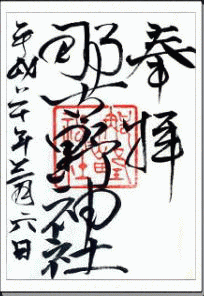 奉拝
那古野神社
平成二十年三月六日